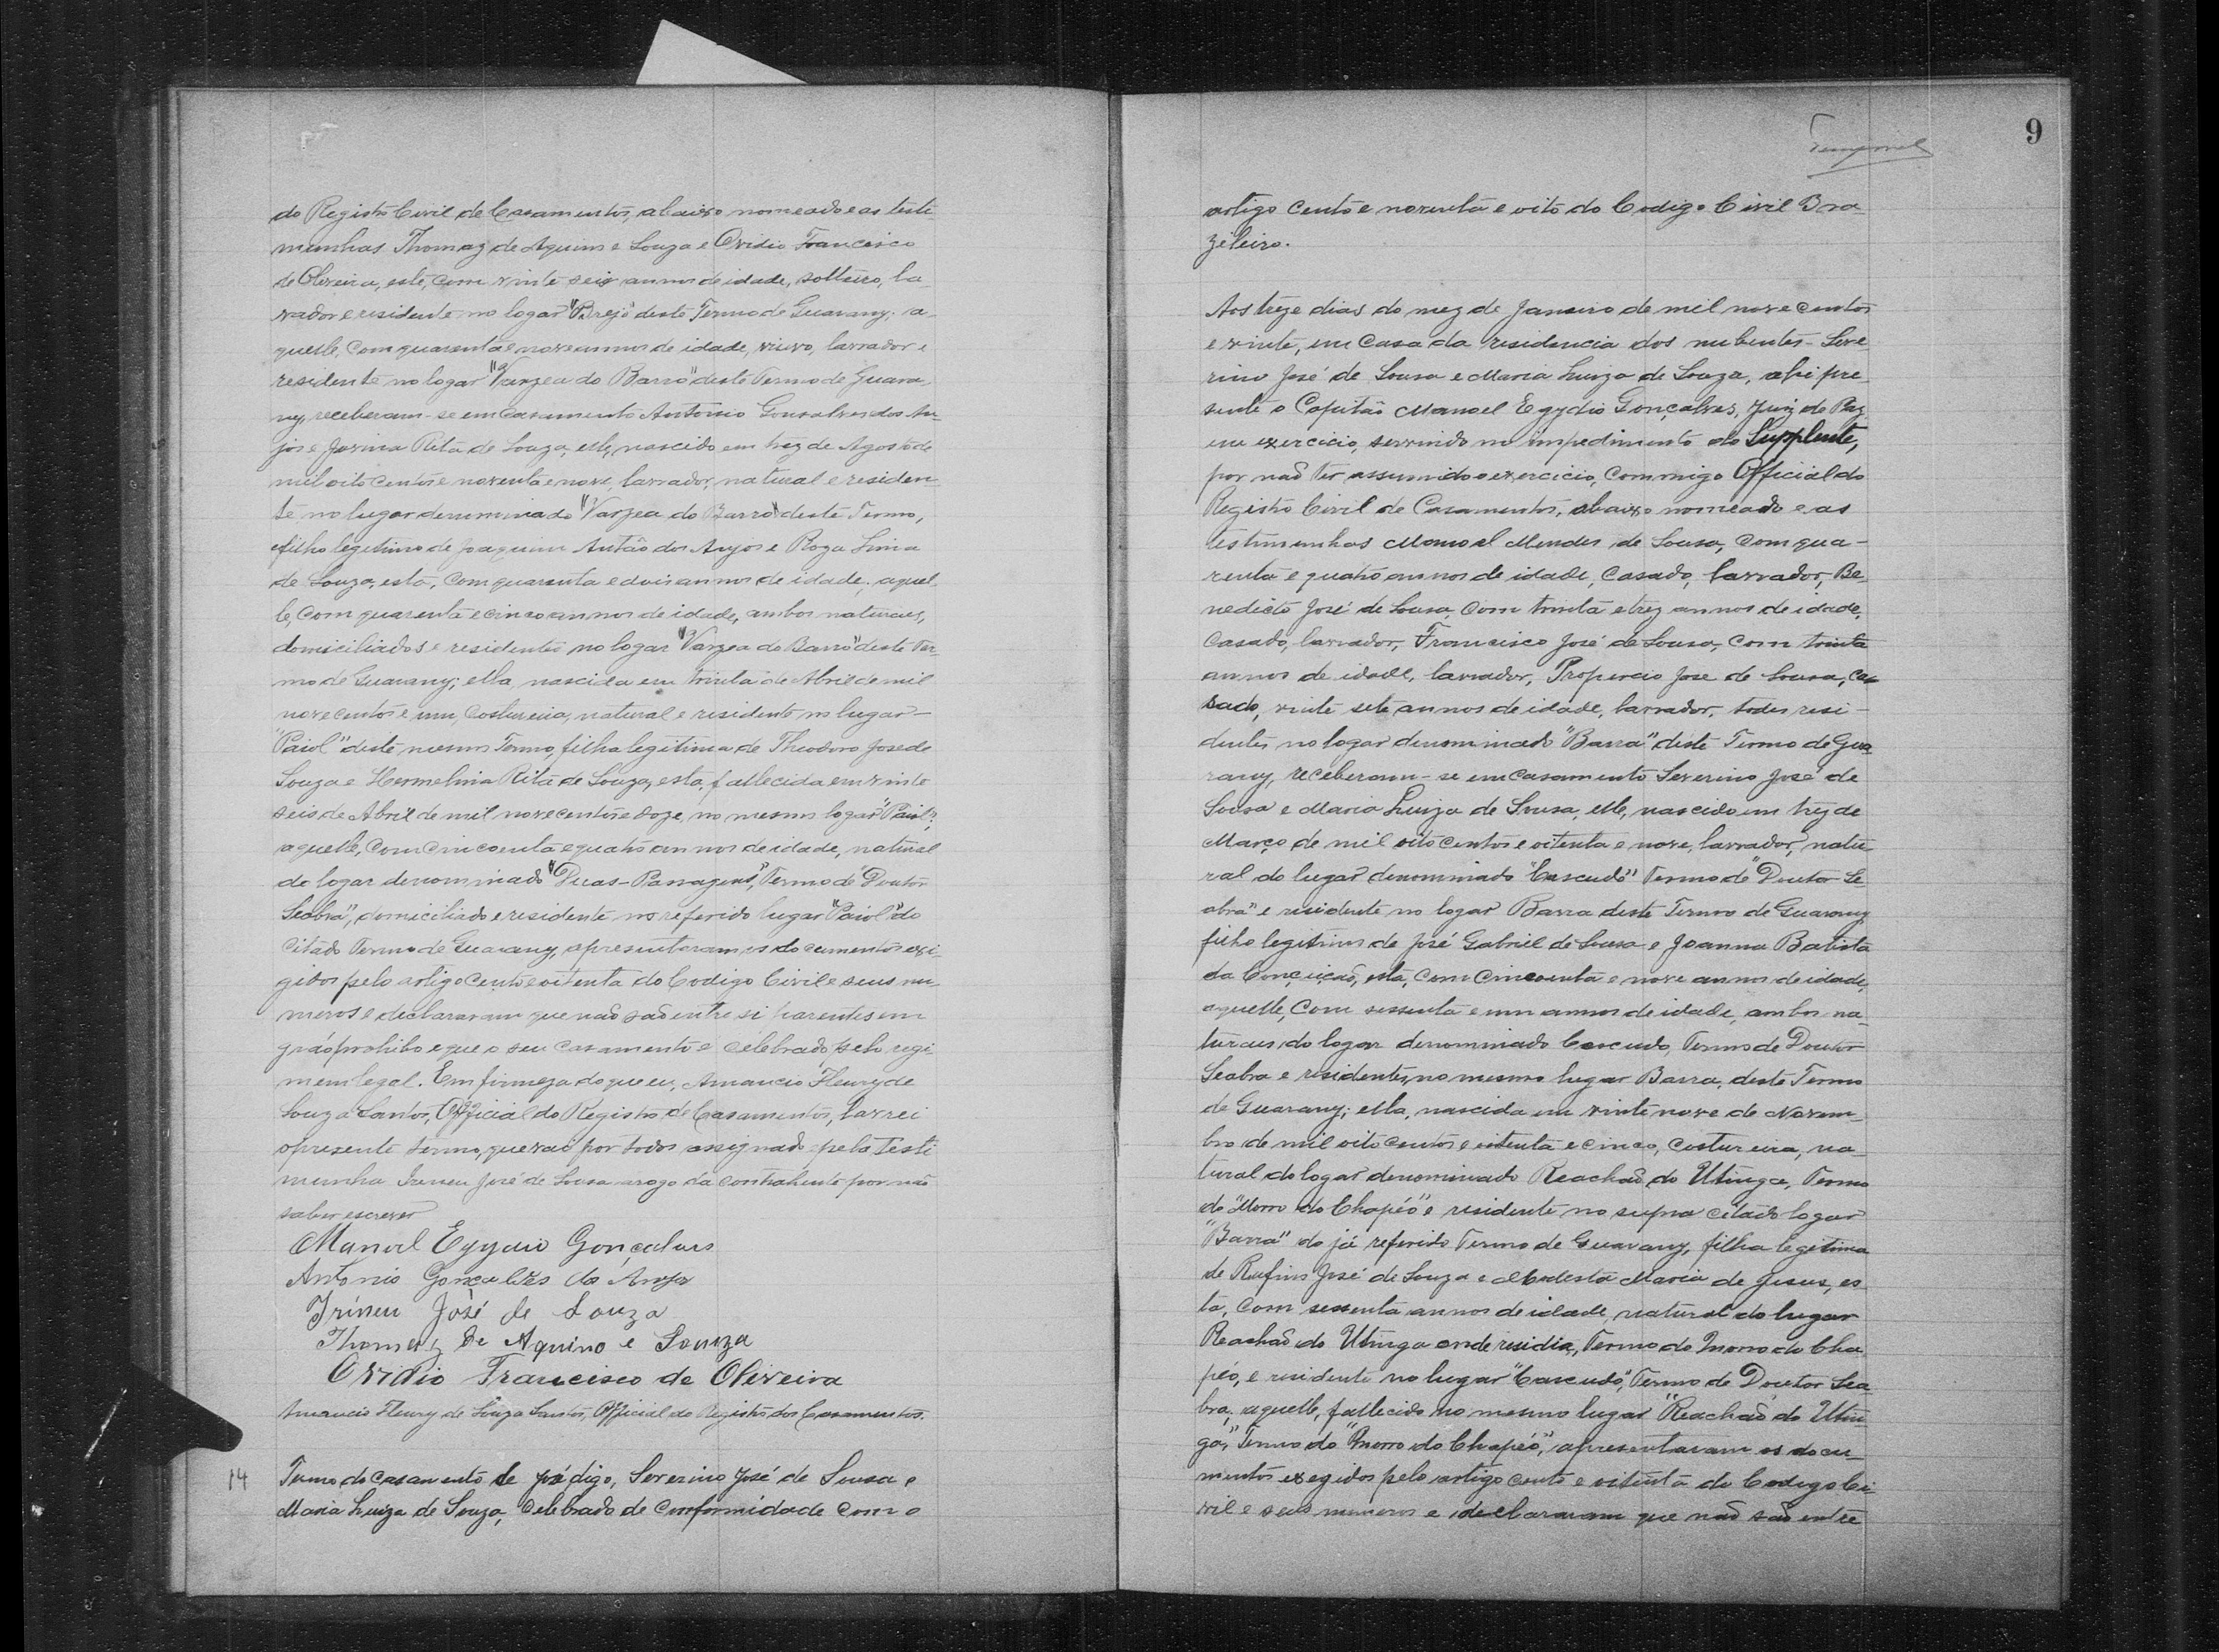 do Registro Civil de Casamentos, abaixo nomeado e as teste
munhas Thomaz de Aquino e Souza e Ovidio Francisco
de Oliveira, este, com vinte seis annos de idade, solteiro, la
vrador e residente no logar "Brejo" deste Termo de Guarany; a-
quelle, com quarenta e nove annos de idade, viuvo, lavrador e
residente no logar "Varzea do Barro" deste Termo de Guara-
ny, receberam-se em casamento Antonio Gonsalves dos An-
jos e Jovina Rita de Souza, elle, nascido em trez de Agosto de
mil oito centos e noventa e nove, lavrador, natural e residen-
te no lugar denominado "Varzea do Barro" deste Termo,
filho legitimo de Joaquim Antão dos Anjos e Roza Lima
de Souza, esta, com quarenta e dois annos de idade; aquel
le, com quarenta e cinco annos de idade, ambos naturaes,
domiciliados e residentes no logar "Varzea do Barro" deste Ter-
mo de Guarany; ella, nascida em trinta de Abril de mil
nove centos e um, costureira, natural e residente no lugar-
"Paiol" deste mesmo Termo, filha legitima de Theodoro José de
Souza e Hermelina Rita de Souza, esta, fallecida em vinte
seis de Abril de mil nove centos e doze, no mesmo logar "Paiol";
aquelle, com cincoenta e quatro annos de idade, natural
do logar denominado "Duas-Passagens", Termo de "Doutor
Seabra", domiciliado e residente no referido lugar "Paiol" do
citado Termo de Guarany, apresentaram os documentos exi-
gidos pelo artigo cento e oitenta do Codigo Civil e seus nu-
meros e declararam que não são entre si parentes em
gráo prohibo e que o seu casamento é celebrado pelo regi-
mem legal. Em firmeza do que eu, Amancio Fleury de
Souza Santos, Official do Registro de Casamentos, lavrei
o presente termo, que vai por todos assignado e pela teste
munha Ireneu José de Sousa a rogo da contrahente por não
saber escrever
Manoel Egydio Gonçalves
Antonio Gonçalves do Anjos
Irineu José de Souza
Thomaz de Aquino e Souza
Ovidio Francisco de Oliveira
Amancio Fleury de Souza Santos, Official do Registro dos Casamentos.
14 Termo do casamento de Severino José de Sousa e
Maria Luiza de Souza, celebrado de conformidade com o
9
artigo cento e noventa e oito do Codigo Civil Bra-
zileiro.
Aos treze dias do mez de Janeiro de mil nove centos
e vinte, em casa da residencia dos nubentes - Seve-
rino José de Sousa e Maria Luiza de Souza, ahi pre-
sente o Capitão Manoel Egydio Gonçalves, Juiz de Paz
em exercicio, servindo no impedimento do Supplente,
por não ter assumido o exercicio, commigo Official do
Registro Civil de Casamentos, abaixo nomeado e as
testimunhas Manoel Mendes de Sousa, com qua-
renta e quatro annos de idade, casado, lavrador, Be-
nedicto José de Sousa, com trinta e trez annos de idade,
casado, lavrador, Francisco José de Sousa, com trinta
annos de idade, lavrador, Propercio José de Sousa, ca-
sado, vinte sete annos de idade, lavrador, todos resi-
dentes no logar denominado "Barra" deste Termo de Gua
rany, receberam-se em casamento Severino José de
Sousa e Maria Luiza de Sousa, elle, nascido em trez de
Março de mil oito centos e oitenta e nove, lavrador, natu-
ral do lugar denominado "Cascudo" Termo de "Doutor Se
abra" e residente no logar Barra deste Termo de Guarany
filho legitimo de José Gabriel de Sousa e Joanna Batista
da Conceição, esta, com cincoenta e nove annos de idade,
aquelle, com sessenta e um annos de idade, ambos na-
turaes do logar denominado Cascudo, Termo de Doutor
Seabra e residentes, no mesmo lugar Barra, deste Termo
de Guarany; ella, nascida em vinte nove de Novem-
bro de mil oito centos e oitenta e cinco, costureira, na-
tural do logar denominado Reachão do Utinga, Termo
do "Morro do Chapéo" e residente no supra citado logar
"Barra" do já referido Termo de Guarany, filha legitima
de Rufino José de Souza e Modesta Maria de Jesus, es-
ta, com sessenta annos de idade, natural do lugar
Reachão do Utinga onde residia, Termo do Morro do Cha
péo, e residente no lugar "Cascudo", Termo de Doutor Sea
bra; aquelle, fallecido no mesmo lugar "Reachão do Utin
ga," Termo do "Morro do Chapéo," apresentaram os docu-
mentos exegidos pelo artigo cento e oitenta do Codigo Ci-
vil e seus numeros e declararam que não são entre